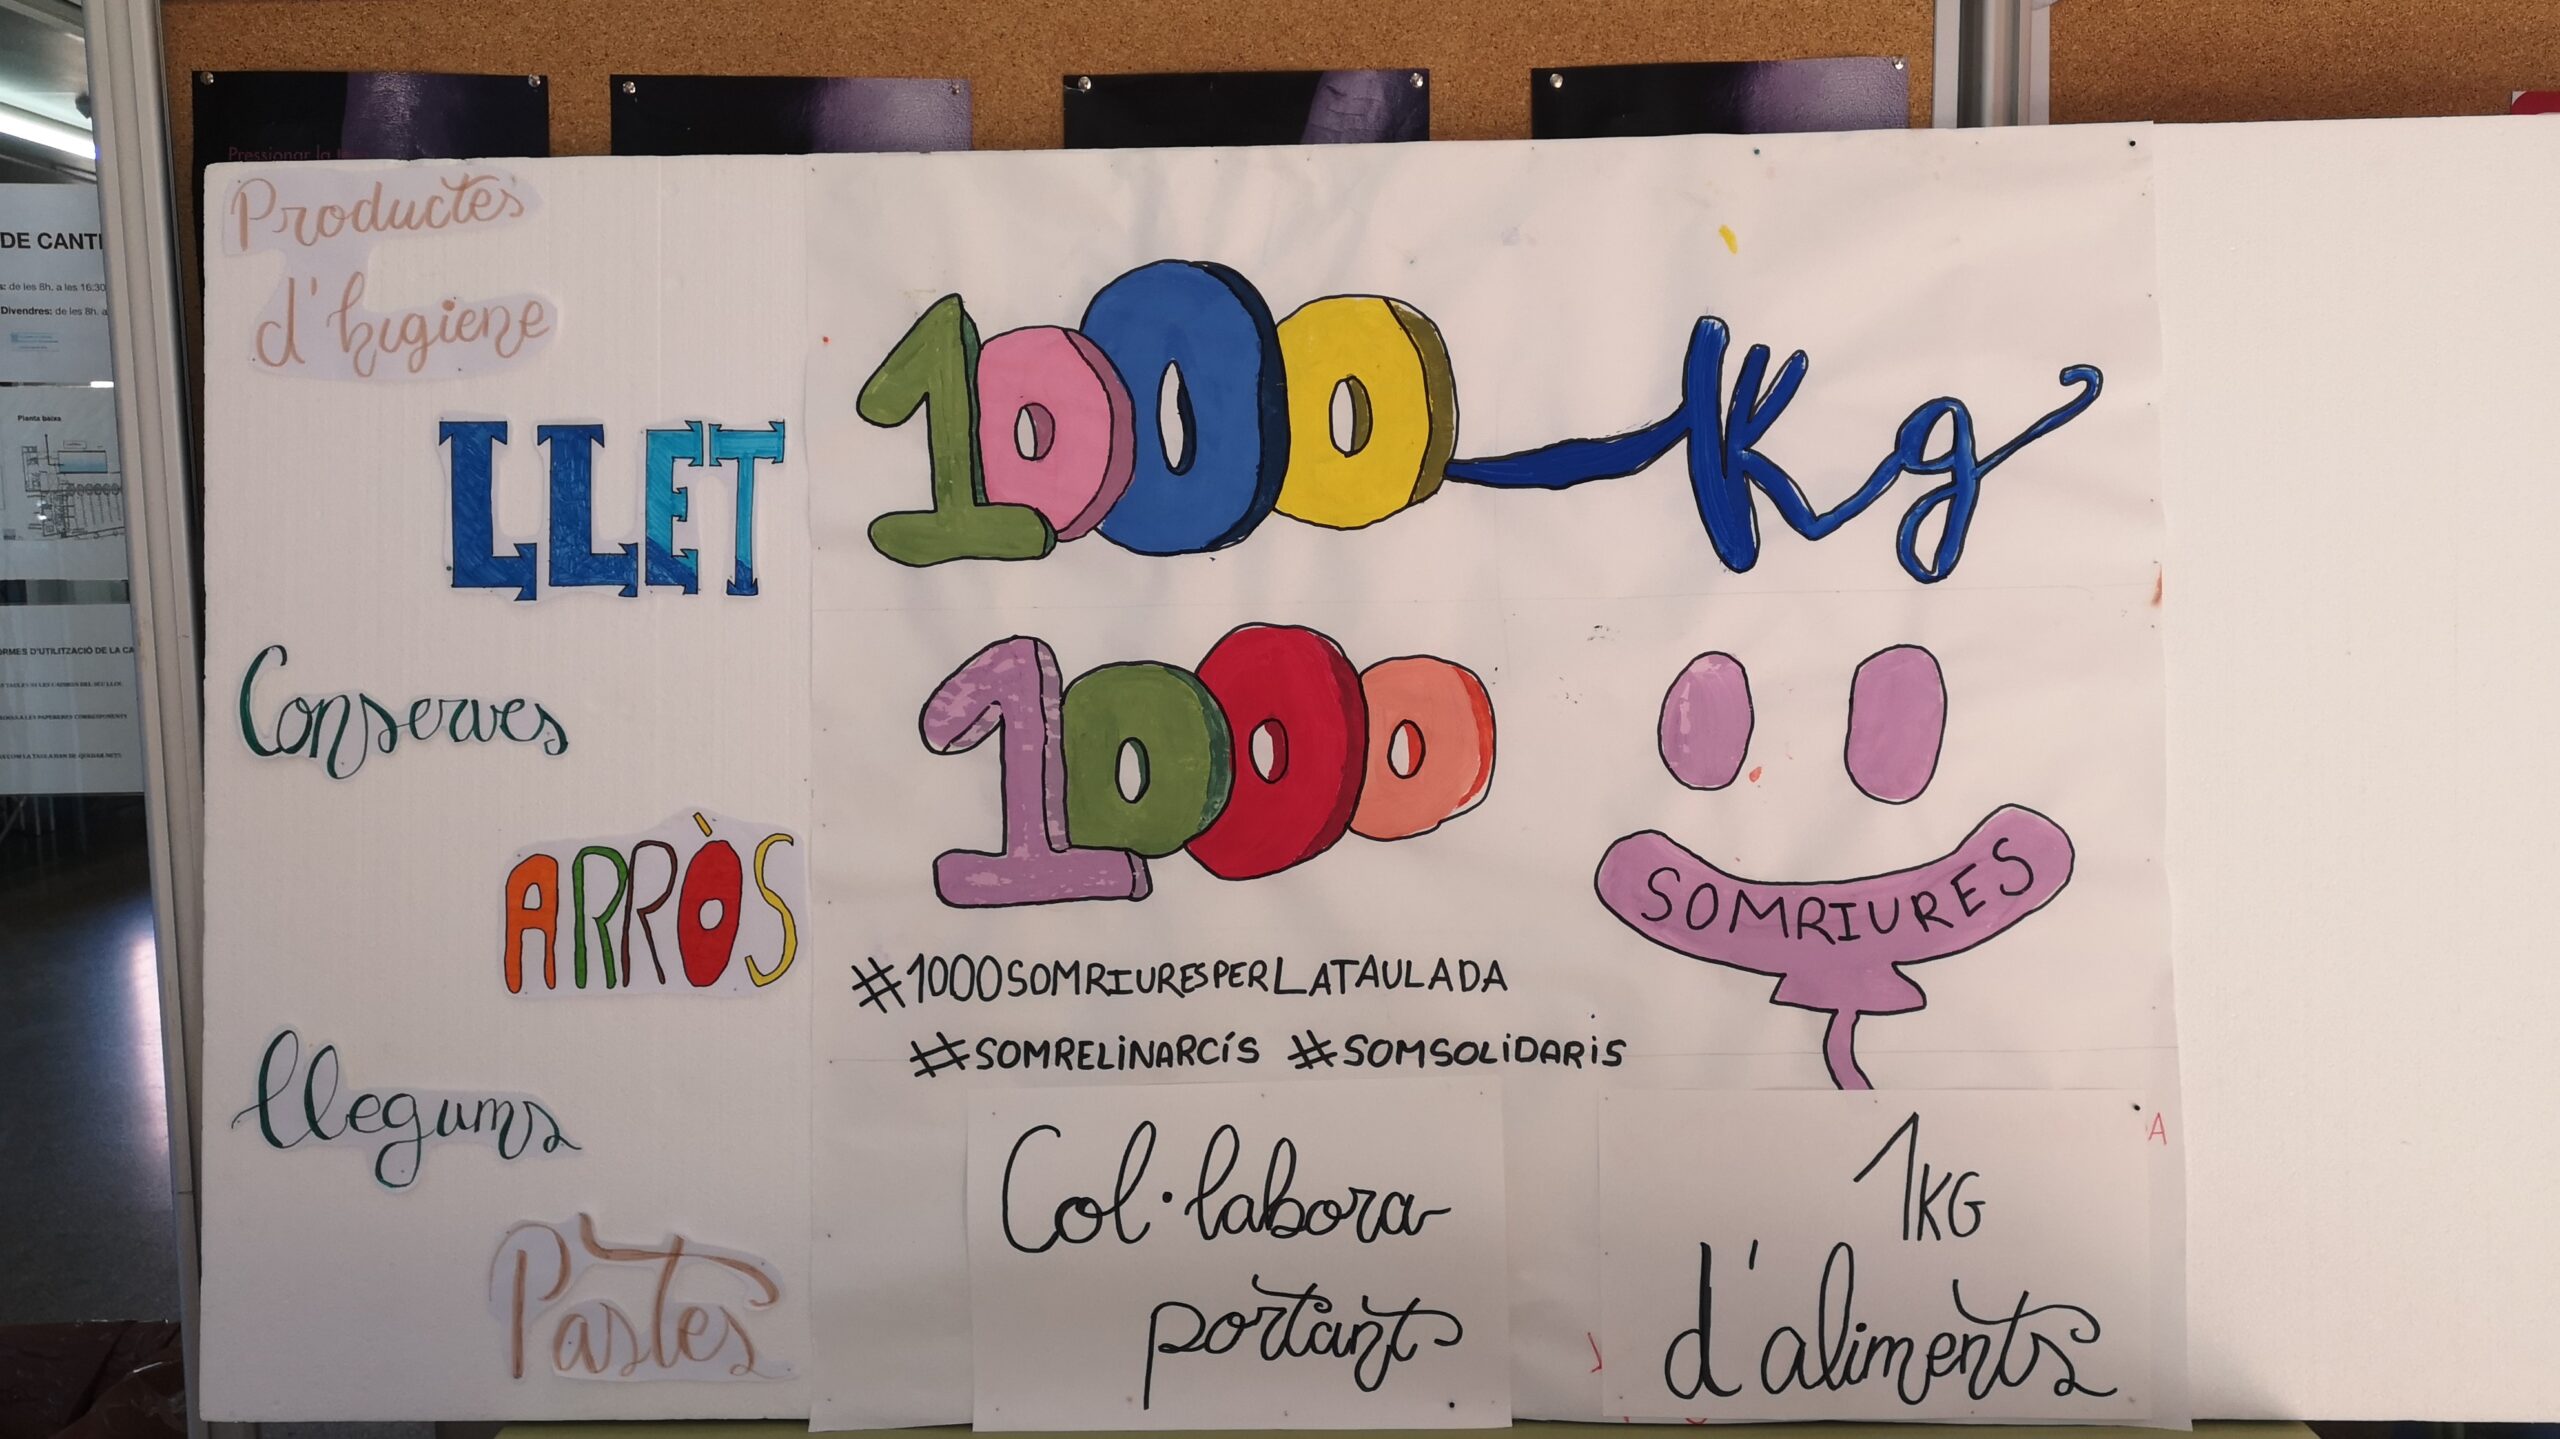 Pressionar la
DE CANTI
s: de les 8h. a les 16:30
Divendres: de les 8h. a
Planta baixa
ORMES D'UTILITZACIÓ DE LA CA
Productes
d'higiene
LLET
Conserves
ARRÒS
llegums
Pastes
1000 Kg
1000
SOMRIURES
#1000SOMRIURESPERLATAULADA
#SOMRELINARCÍS #SOMSOLIDARIS
Col·labora
portant
1KG
d'aliments
A